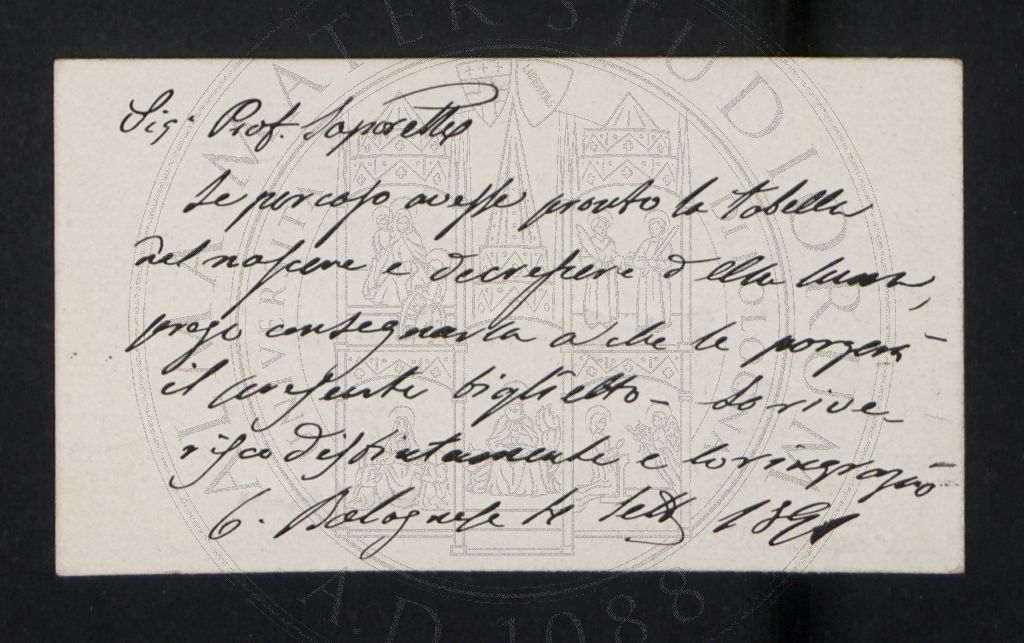 Sigr Prof. Saporetti
Se per caso avesse pronto la tabella
del nascere e decrescere della luna,
prego consegnarla a che le porgerà
il presente biglietto – Lo rive-
risco distintamente e lo ringrazio
Bolognese 4 Sett 1891
ALMA MATER STUDIORUM
A.D. 1088
LIBERTAS